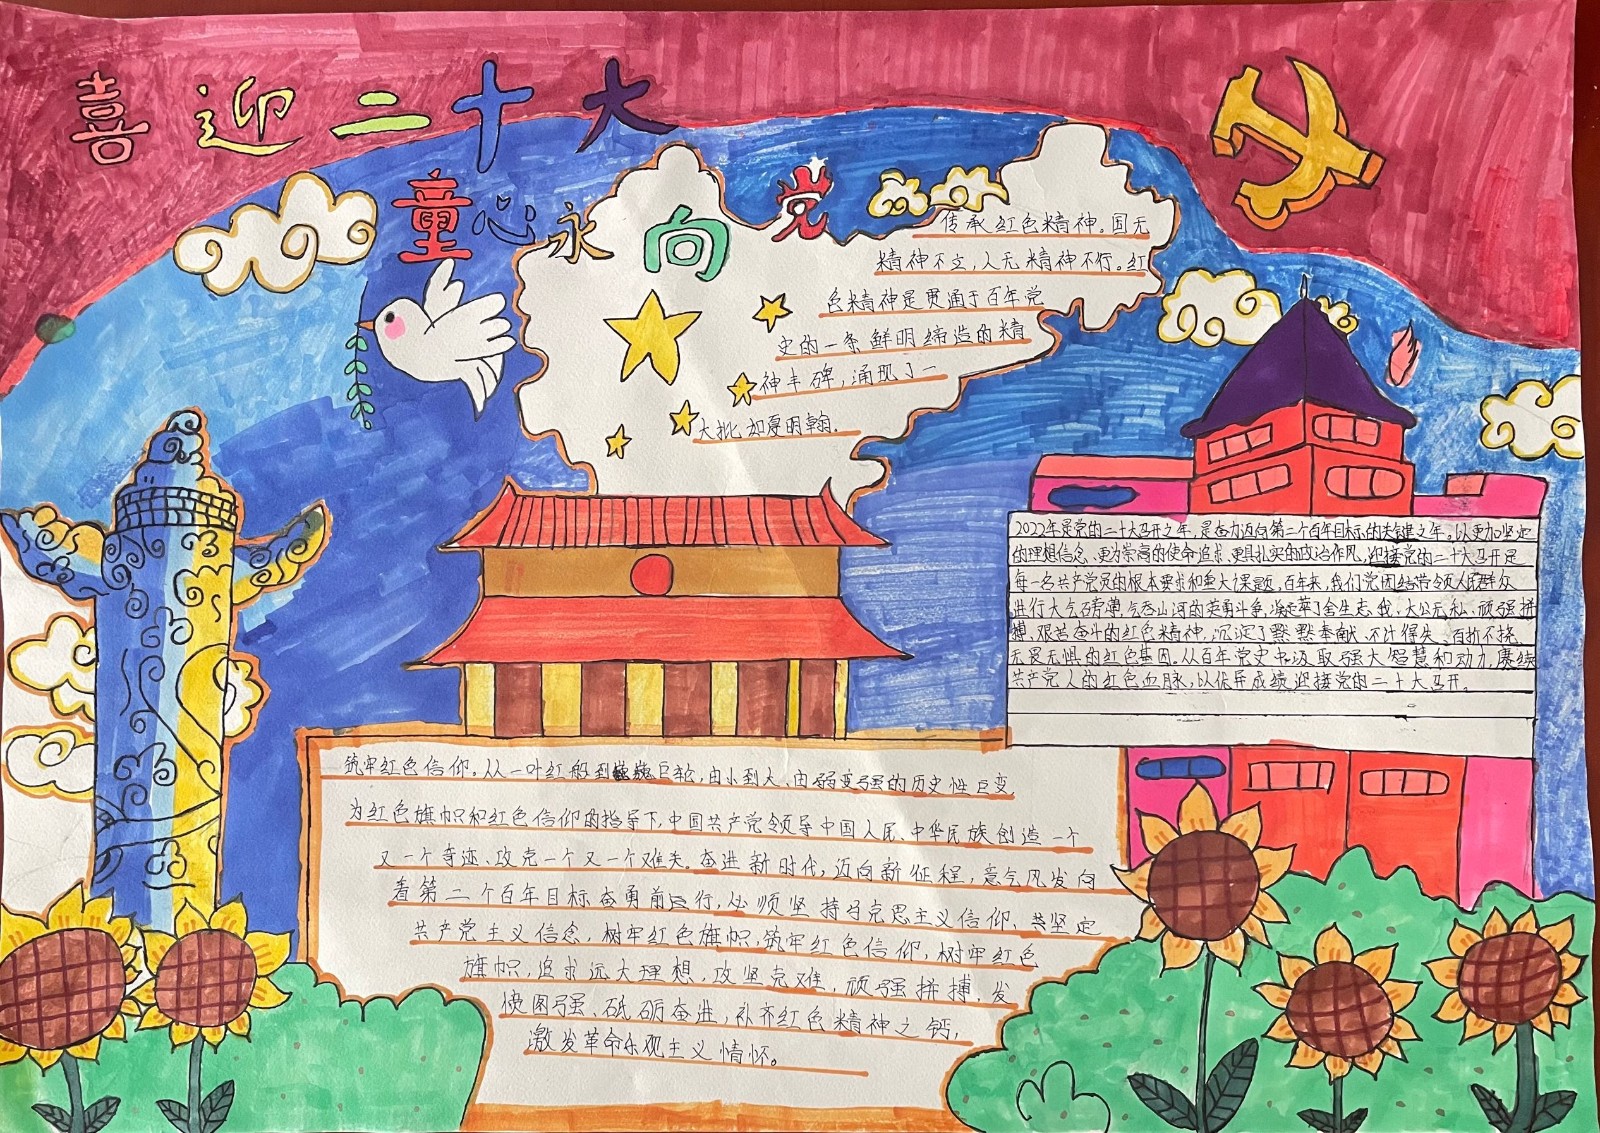 喜迎二十大
童心永向党
传承红色精神。国无
精神不立,人无精神不行。红
色精神是贯通于百年党
史的一条鲜明缔造的精
神丰碑,涌现了一
大批如夏明翰.
2022年是党的二十大召开之年,是奋力迈向第二个百年目标的关键之年。以更加坚定
的理想信念、更为崇高的使命追求、更具扎实的政治作风,迎接党的二十大召开是
每一名共产党员的根本要求和重大课题,百年来,我们党团结带领人民群众
进行大气磅礴,气吞山河的英勇斗争,凝走苹了舍生忘我、大公无私、顽强拼
搏、艰苦奋斗的红色精神,沉淀了默默奉献、不计得失、百折不挠、
无畏无惧的红色基因。从百年党史中汲取强大智慧和动力,赓续
共产党人的红色血脉,以优异成绩迎接党的二十大召开。
筑牢红色信仰。从一叶红船到巍巍巨轮,由小到大、由弱变强的历史性巨变,
为红色旗帜和红色信仰的指导下,中国共产党领导中国人民、中华民族创造一个
又一个奇迹、攻克一个又一个难关。奋进新时代,迈向新征程,意气风发向
着第二个百年目标奋勇前行,必须坚持马克思主义信仰、共坚定
共产党主义信念,树牢红色旗帜,筑牢红色信仰,树牢红色
旗帜,追求远大理想,攻坚克难,顽强拼搏,发
愤图强、砥砺奋进,补齐红色精神之钙,
激发革命乐观主义情怀。